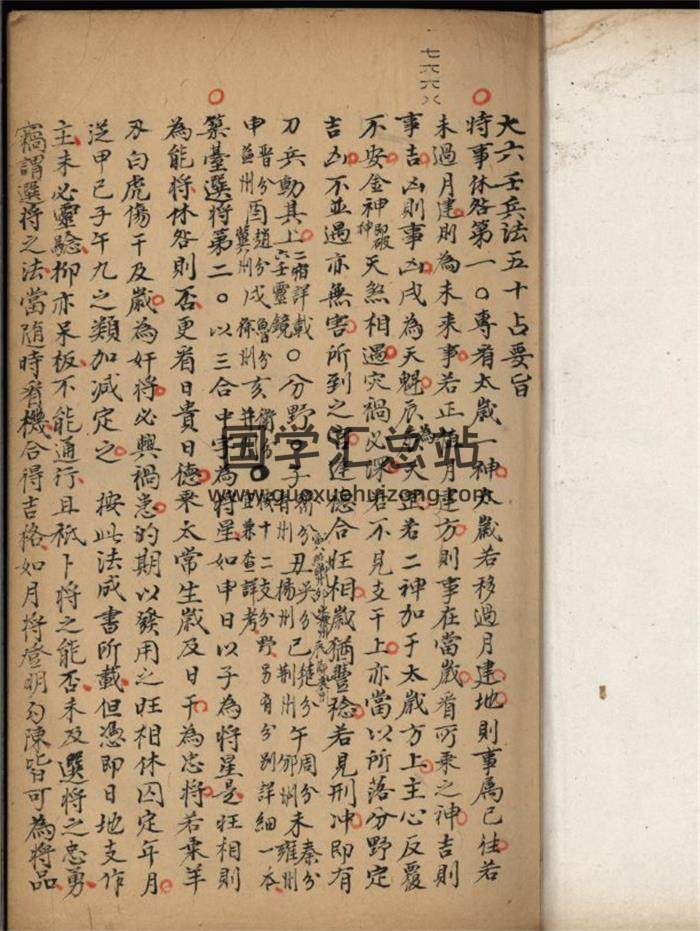 大六壬兵法五十占要旨
時事休咎第一〇專看太歲一神太歲若移過月建地則事屬已往若
未過月建則為未來事若正值月建方則事在當歲看所乘之神吉則
事吉凶則事凶戌為天魁辰為天罡若二神加于太歲方上主心反覆
不安金神即破碎天煞相遇灾禍必深若不見支干上亦當以所落分野定
吉凶不並過亦無害所到之逢德合旺相歲猶豐稔若見刑冲即有
刀兵動其上二神詳載六壬靈鏡〇分野子青州丑吳分揚州巳楚分荊州午周分未秦分雍州
申晉分益州酉趙分冀州戌魯分徐州亥衛分并州十二支分野另有分別詳細一本宜兼查詳考
築臺選將第二〇以三合中字為將星如申日以子為將星是旺相則
為能將休咎則否更看日貴日德乘太常生歲及日干為忠將若乘羊
刃白虎傷干及歲為奸將必興禍患的期以發用之旺相休囚定年月
從甲己子午九之類加減定之 按此法成書所載但憑即日地支作
主未必靈驗抑亦呆板不能通行且祇卜將之能否未及選將之忠勇
竊謂選將之法當随時看機合得吉格如月將登明勾陳皆可為將品
七六六八
国学汇总站
www.guoxuehuizong.com